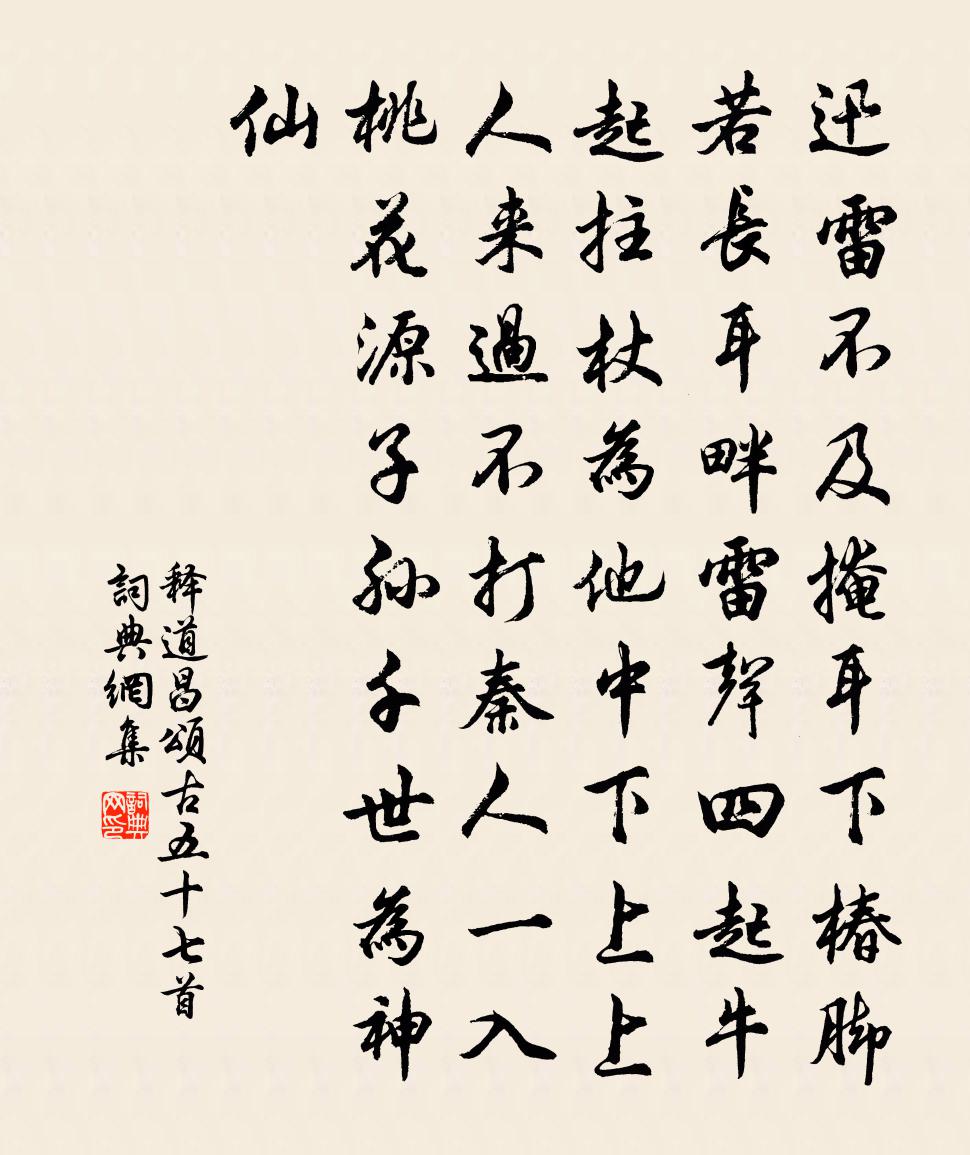 迅雷不及掩耳下椿脚
若長耳畔雷聲四起牛
起拄杖為他中下上上
人来過不打秦人一入
桃花源子孙千世為神
仙
释道昌頌古五十七首
詞典網集
詞典网印